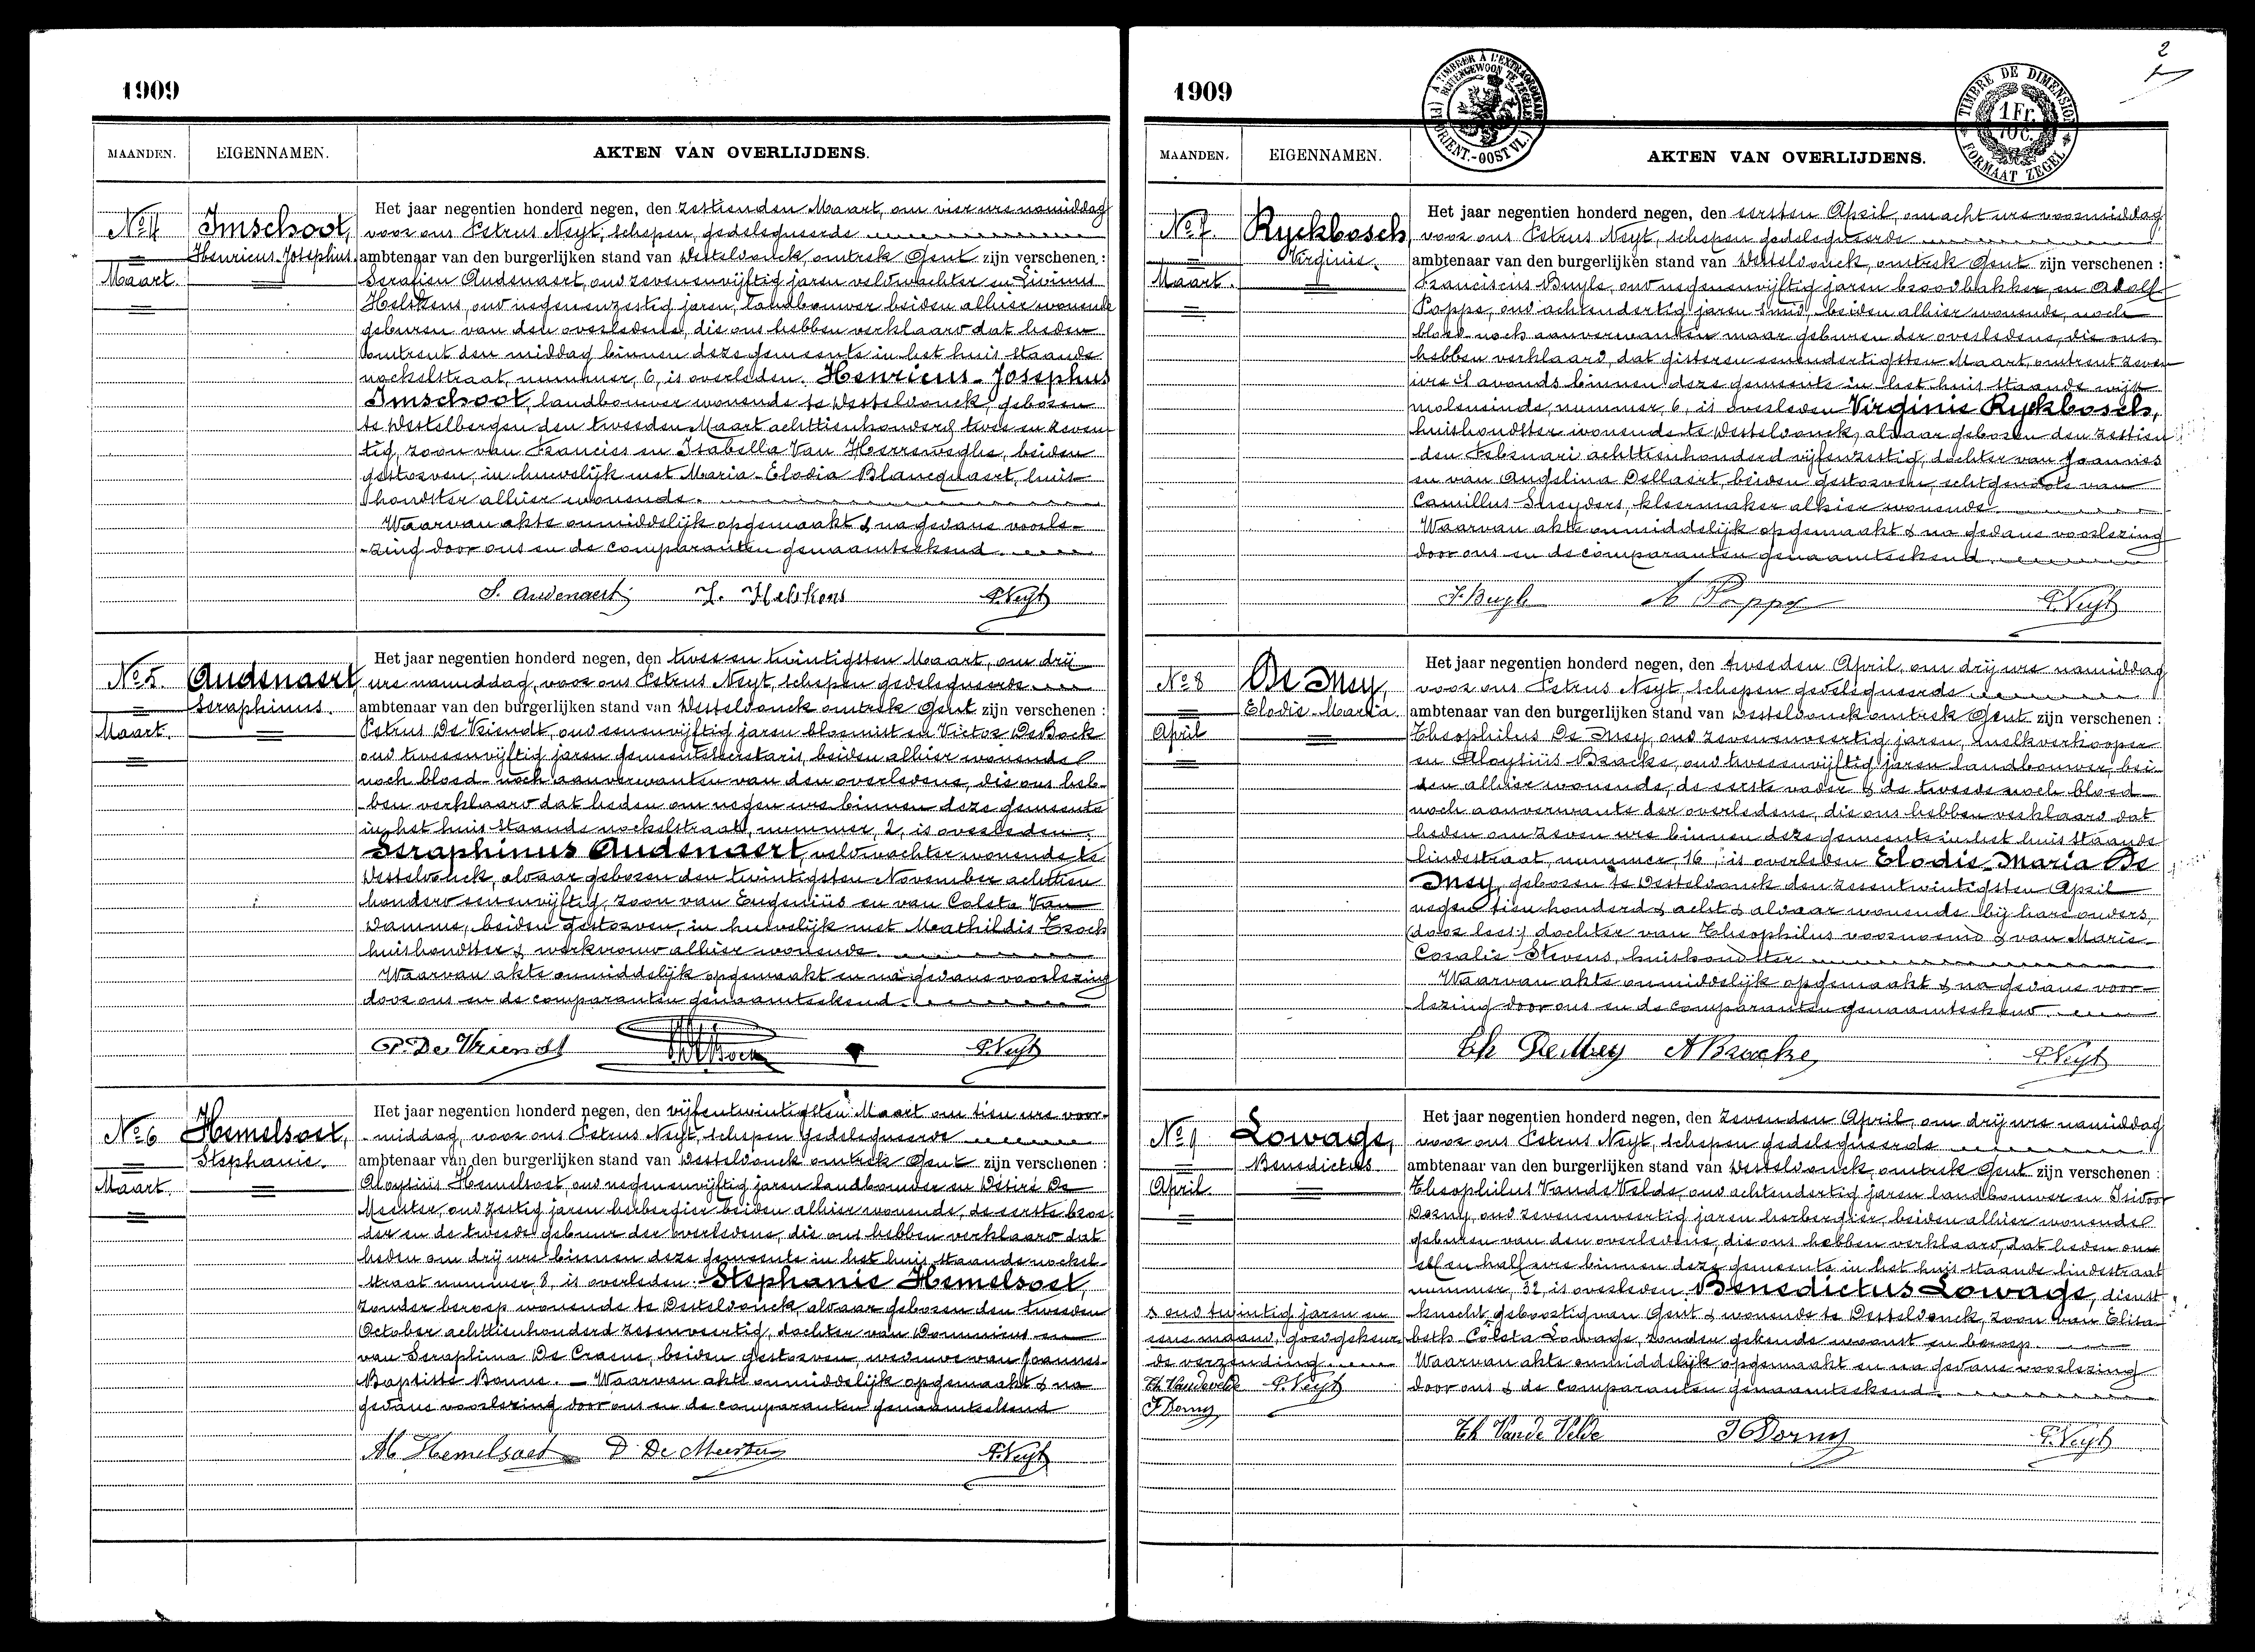 1909
MAANDEN. EIGENNAMEN. AKTEN VAN OVERLIJDENS.
No 4 Imschoot,
Henricus-Josephus.
Maart.
Het jaar negentien honderd negen, den zestienden Maart, om vier ure namiddag
voor ons Petrus Neyt, schepen, gedelegueerde
ambtenaar van den burgerlijken stand van Desteldonck, omtrek Gent zijn verschenen :
Serafien Audenaert, oud zevenenvijftig jaren veldwachter en Livinus
Helskens, oud negenenzestig jaren, landbouwer beiden alhier wonende
geburen van den overledene, die ons hebben verklaard dat heden
omtrent den middag binnen deze gemeente in het huis staande
nockelstraat, nummer, 6, is overleden. Henricus-Josephus
Imschoot, landbouwer wonende te Desteldonck, geboren
te Destelbergen den tweeden Maart achttienhonderd twee en zeven-
tig, zoon van Francies en Isabella Van Herreweghe, beiden
gestorven, in huwelijk met Maria-Elodia Blancquaert, huis-
houdster alhier wonende.
Waarvan akte onmiddelijk opgemaakt & na gedane voorle-
-zing door ons en de comparanten genaamteekend.
S. Audenaert L. Helskens P. Neyt
No 5. Audenaert,
Seraphinus.
Maart.
Het jaar negentien honderd negen, den twee en twintigsten Maart, om drij
ure namiddag, voor ons Petrus Neyt, schepen gedelegueerde
ambtenaar van den burgerlijken stand van Desteldonck omtrek Gent zijn verschenen :
Petrus De Vriendt, oud eenenvijftig jaren bloemist en Victor De Bock
oud tweeenvijftig jaren gemeentesecretaris, beiden alhier wonende
noch bloed- noch aanverwanten van den overledene, die ons heb-
ben verklaard dat heden om negen ure binnen deze gemeente
in het huis staande nockelstraat, nummer, 2, is overleden.
Seraphinus Audenaert, veldwachter wonende te
Desteldonck, aldaar geboren den twintigsten November achttien
honderd eenenvijftig, zoon van Eugeniüs en van Coleta Van
Damme, beiden gestorven, in huwelijk met Mathildis Troch
huishoudster & werkvrouw alhier wonende.
Waarvan akte onmiddelijk opgemaakt en na gedane voorlezing
door ons en de comparanten genaamteekend.
P. De Vriendt P. Neyt
No 6 Hemelsoet,
Stephanie.
Maart.
Het jaar negentien honderd negen, den vijfentwintigsten Maart om tien ure voor-
-middag, voor ons Petrus Neyt, schepen gedelegueerde
ambtenaar van den burgerlijken stand van Desteldonck omtrek Gent zijn verschenen :
Aloysiüs Hemelsoet, oud negenenvijftig jaren landbouwer en Désiré De
Meester, oud zestig jaren herbergier beiden alhier wonende, de eerste broe-
der en de tweede gebuur der overledene, die ons hebben verklaard dat
heden om drij ure binnen deze gemeente in het huis staande nockel-
straat nummer, 8, is overleden. Stephanie Hemelsoet,
zonder beroep wonende te Desteldonck, aldaar geboren den tweeden
October achttienhonderd zesenveertig, dochter van Dominicus en
van Seraphina De Craene, beiden gestorven, weduwe van Joannes-
Baptiste Bonne. — Waarvan akte onmiddelijk opgemaakt & na
gedane voorlezing door ons en de comparanten genaamteekend
Al. Hemelsoet D. De Meester P. Neyt
2
1909
A TIMBRER À L'EXTRAORDINAIRE
BUITENGEWOON TE ZEGELEN
(Fl. ORIENT.-OOST VL.)
TIMBRE DE DIMENSION
1 Fr.
10 C.
FORMAAT ZEGEL
MAANDEN. EIGENNAMEN. AKTEN VAN OVERLIJDENS.
No 7. Ryckbosch,
Virginie.
Maart.
Het jaar negentien honderd negen, den eersten April, om acht ure voormiddag
voor ons Petrus Neyt, schepen gedelegueerde
ambtenaar van den burgerlijken stand van Desteldonck, omtrek Gent zijn verschenen :
Franciscus Buyle, oud negenenvijftig jaren broodbakker, en Adolf
Pappe, oud achtendertig jaren smid, beiden alhier wonende, noch
bloed- noch aanverwanten maar geburen der overledene, die ons
hebben verklaard, dat gisteren eenendertigsten Maart, omtrent zeven
ure 's avonds binnen deze gemeente in het huis staande wijk
moleneinde, nummer, 6, is overleden Virginie Ryckbosch,
huishoudster wonende te Desteldonck, aldaar geboren den zestien
den Februari achttienhonderd vijfenzestig, dochter van Joannes
en van Angelina Dellaert, beiden gestorven, echtgenoote van
Camillus Sneyders, kleermaker alhier wonende.
Waarvan akte onmiddelijk opgemaakt & na gedane voorlezing
door ons en de comparanten genaamteekend.
F. Buyle A. Pappe P. Neyt
No 8 De Mey,
Elodie-Maria.
April
Het jaar negentien honderd negen, den tweeden April, om drij ure namiddag
voor ons Petrus Neyt, schepen gedelegueerde
ambtenaar van den burgerlijken stand van Desteldonck omtrek Gent zijn verschenen :
Theophilus De Mey, oud zevenenveertig jaren, melkverkooper
en Aloysiüs Bracke, oud tweeenvijftig jaren landbouwer, bei-
den alhier wonende, de eerste vader & de tweede noch bloed-
noch aanverwante der overledene, die ons hebben verklaard dat
heden om zeven ure binnen deze gemeente in het huis staande
lindestraat, nummer, 16, is overleden Elodie-Maria De
Mey, geboren te Desteldonck den zesentwintigsten April
negentien honderd & acht & aldaar wonende bij hare ouders,
dochter van Theophilus voornoemd & van Marie-
Coralie Stevens, huishoudster
Waarvan akte onmiddelijk opgemaakt & na gedane voor-
lezing door ons en de comparanten genaamteekend.
Th De Mey A Bracke, P. Neyt
No 9 Lowage,
Benedictus
April.
Het jaar negentien honderd negen, den zevenden April, om drij ure namiddag
voor ons Petrus Neyt, schepen gedelegueerde
ambtenaar van den burgerlijken stand van Desteldonck, omtrek Gent zijn verschenen :
Theophilus Vande Velde, oud achtendertig jaren landbouwer en Isidoor
Dorny, oud zevenenveertig jaren herbergier, beiden alhier wonende
geburen van den overledene, die ons hebben verklaard, dat heden om
elf en half ure binnen deze gemeente in het huis staande lindestraat
nummer, 32, is overleden Benedictus Lowage, dienst
knecht geboortig van Gent & wonende te Desteldonck, zoon van Elisa-
beth Coleta Lowage, zonder gekende woonst en beroep.
Waarvan akte onmiddelijk opgemaakt en na gedane voorlezing
door ons & de comparanten genaamteekend.
& oud twintig jaren en
eene maand, goedgekeur-
de verzending.
Th. Vandevelde P. Neyt
I Dorny
Th Van de Velde I Dorny P. Neyt